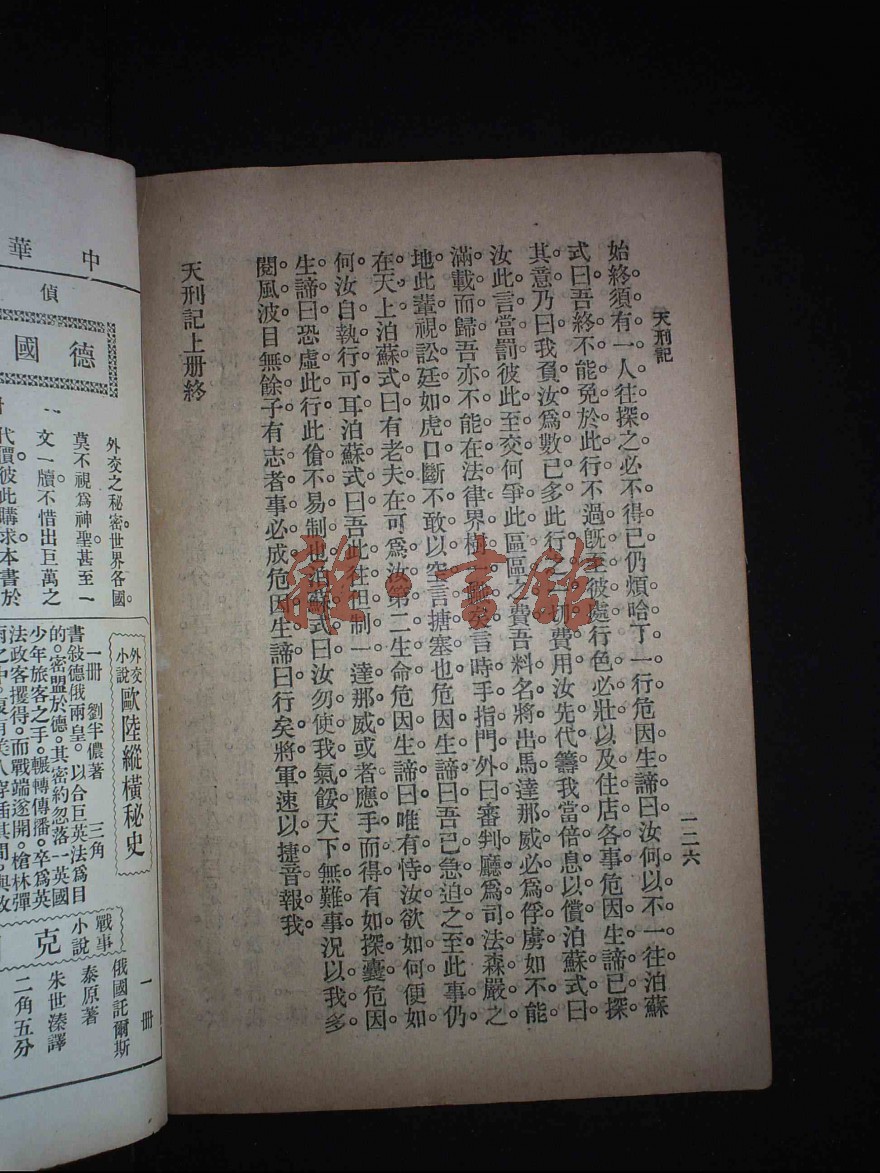 天刑記
一二六
始終須有一人往探之必不得已仍煩哈丁一行危因生諦曰汝何以不一往泊蘇
式曰吾終不能免於此行不過旣至彼處行色必壯以及住店各事危因生諦已探
其意乃曰我負汝爲數已多此行一切費用汝先代籌我當倍息以償泊蘇式曰
汝此言當罰彼此至交何爭此區區之費吾料名將出馬達那威必爲俘虜如不能
滿載而歸吾亦不能在法律界棲一矣言時手指門外曰審判廳爲司法森嚴之
地此輩視訟廷如虎口斷不敢以空言搪塞也危因生諦曰吾已急迫之至此事仍
在天上泊蘇式曰有老夫在可爲汝第二生命危因生諦曰唯有恃汝欲如何便如
何汝自執行可耳泊蘇式曰吾此往但制一達那威或者應手而得有如探囊危因
生諦曰恐虛此行此傖不易制也泊蘇式曰汝勿使我氣餒天下無難事況以我多
閱風波目無餘子有志者事必成危因生諦曰行矣將軍速以捷音報我
天刑記上册終
中華
偵
德國
外交之秘密世界各國。
莫不視爲神聖甚至一
文一牘不惜出巨萬之
代價。彼此購求本書於
外交小說
歐陸縱橫秘史
一册 劉半儂著 三角
書敍德俄兩皇。以合巨英法爲目
的。密盟於德。其密約忽落一英國
少年旅客之手。輾轉傳播。卒爲英
法政客攫得。而戰端遂開。槍林彈
戰事小說
克
一册
俄國託爾斯
泰原著
朱世溱譯
二角五分
龍·書館